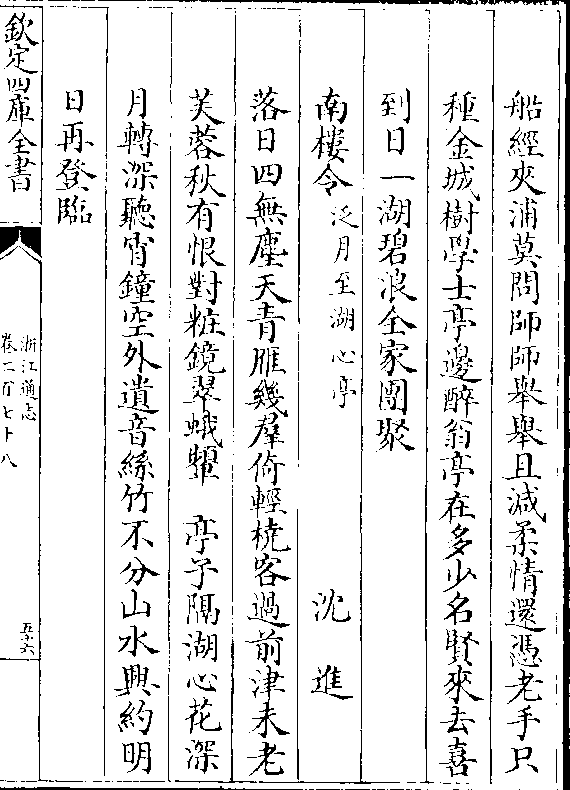 船經夾浦莫問師師舉舉且減柔情還憑老手只
種金城樹學士亭邊醉翁亭在多少名賢來去喜
到日一湖碧浪全家團聚
南樓令 泛月至湖心亭 沈進
落日四無塵天青雁幾羣倚輕橈客過前津未老
芙蓉秋有恨對粧鏡翠蛾顰 亭子隔湖心花深
月轉深聽宵鐘空外遺音絲竹不分山水興約明
日再登臨
欽定四庫全書
浙江通志
卷二百七十八
五十六